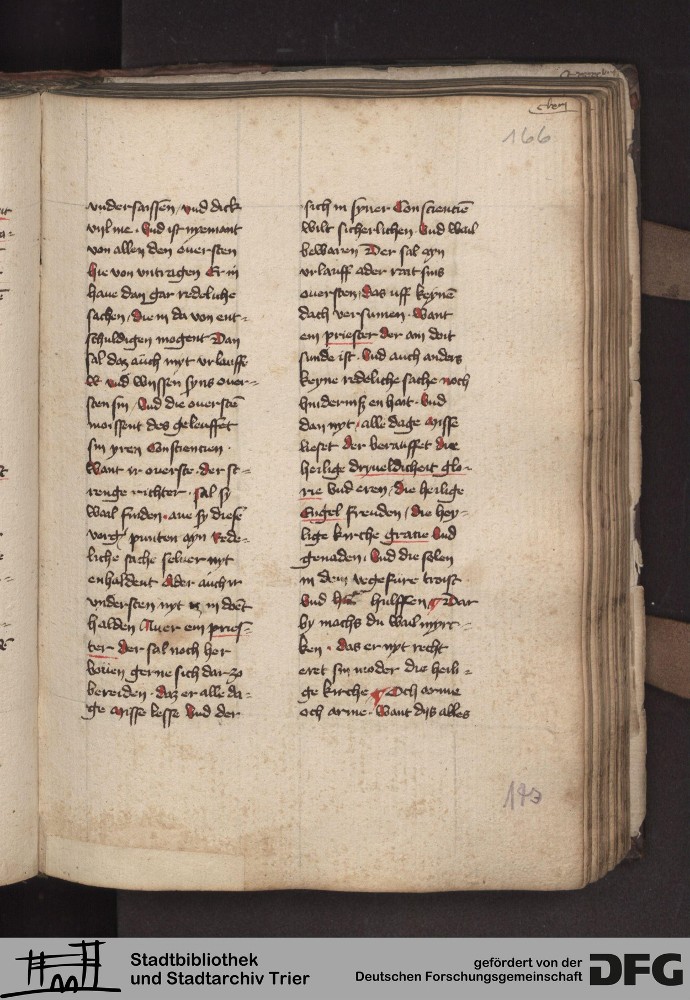 166
vndersaissen / vnd dick
vijl me · Vnd ist nyemant
von allen den ouersten
hie von vntzigen Er in
haue dan gar redeliche
sachen / die in da von ent-
schuldigen mogent Dan
sal daz auch myt vrlauffe
vnd wyssen syns ouer-
sten sin / Vnd die ouersten
moissent des geleuffet
sin yren Consciencien ·
Want ir ouerste · der st-
renge richter · sal sy
wail finden · aue sy diese
punten ayn rede-
liche sache seluer nyt
enhaldent Ader auch ir
vndersten nyt in doet
halden Auer ein pries-
ter der sal noch her
gerne sich dar zo
bereiden · daz er alle da-
ge misse lesse Vnd der
sich in syner Consciencie
wilt sicherlichen · Vnd wail
bewaren Der sal ayn
vrlauff ader rait sins
ouersten / das uff keyne
dach versumen · Want
ein priester der ain doit
sunde ist · Vnd auch anders
keyne redeliche sache noch
hinderniß en hait · Vnd
dan nyt · alle dage misse
lieset der berauffet die
heilige dryueldicheit glo-
rie Vnd eren / die heilige
Engel freuden / die hey-
lige kirche gracie Vnd
genaden · Vnd die selen
in dem vegefure troist
Vnd hulffen Dar
by machs du wail myrc-
ken · das er nyt recht
eret sin moder die heili-
ge kirche Och arme
och arme · Want dijs alles
173
Stadtbibliothek
und Stadtarchiv Trier
gefördert von der
Deutschen Forschungsgemeinschaft
DFG